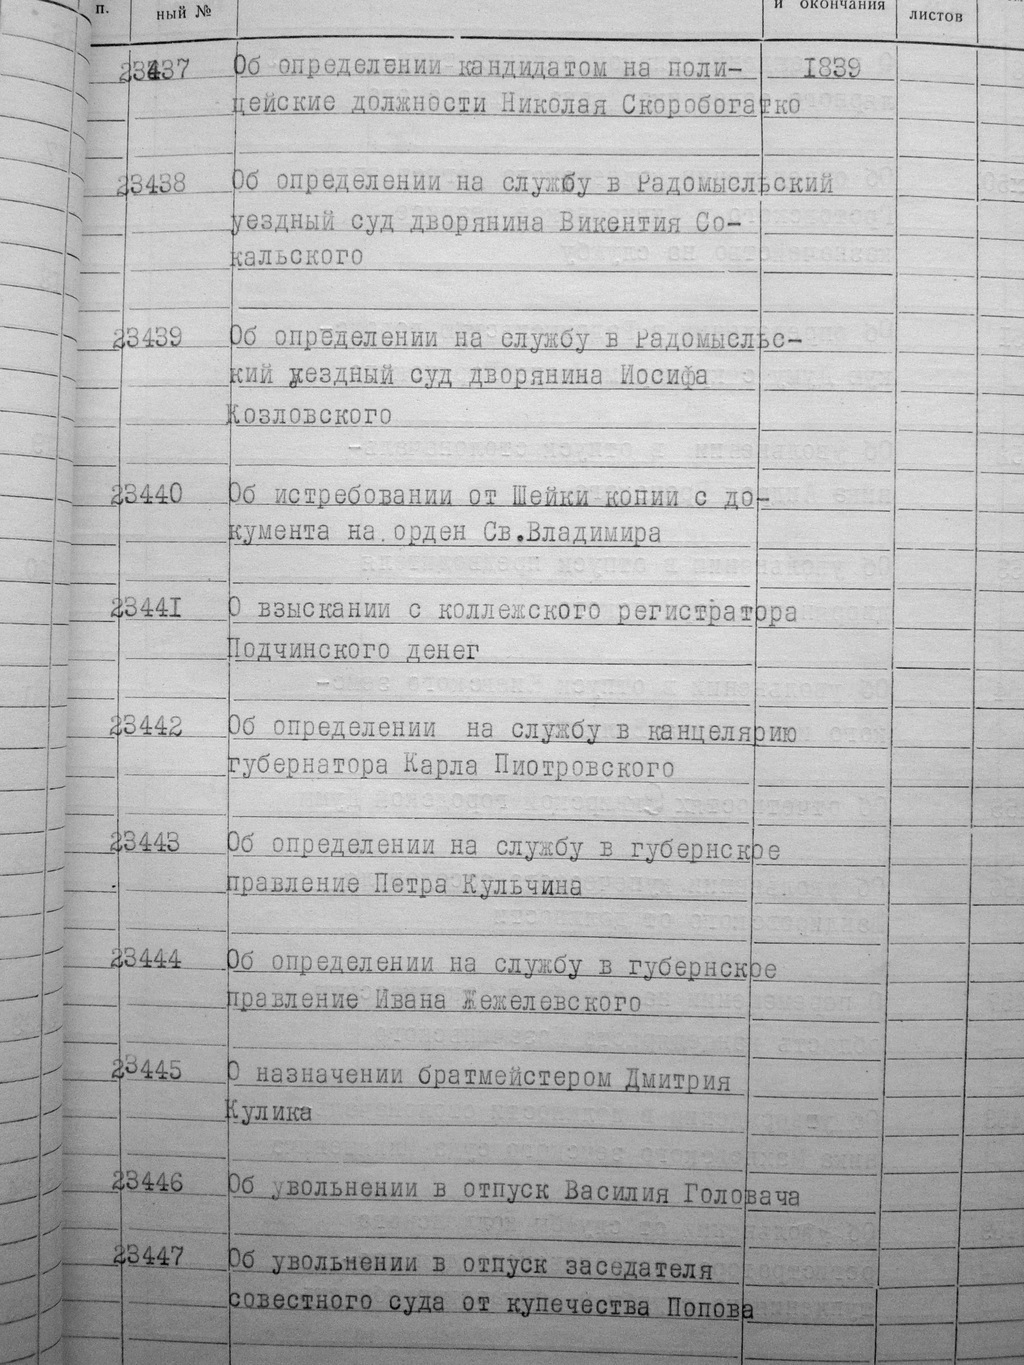 п.
ный №
и окончания
листов
23437 Об определении кандидатом на поли- 1839
цейские должности Николая Скоробогатко
23438 Об определении на службу в Радомысльский
уездный суд дворянина Викентия Со-
кальского
23439 Об определении на службу в Радомысльс-
кий уездный суд дворянина Иосифа
Козловского
23440 Об истребовании от Шейки копии с до-
кумента на орден Св.Владимира
23441 О взыскании с коллежского регистратора
Подчинского денег
23442 Об определении на службу в канцелярию
губернатора Карла Пиотровского
23443 Об определении на службу в губернское
правление Петра Кульчина
23444 Об определении на службу в губернское
правление Ивана Жежелевского
23445 О назначении братмейстером Дмитрия
Кулика
23446 Об увольнении в отпуск Василия Головача
23447 Об увольнении в отпуск заседателя
совестного суда от купечества Попова